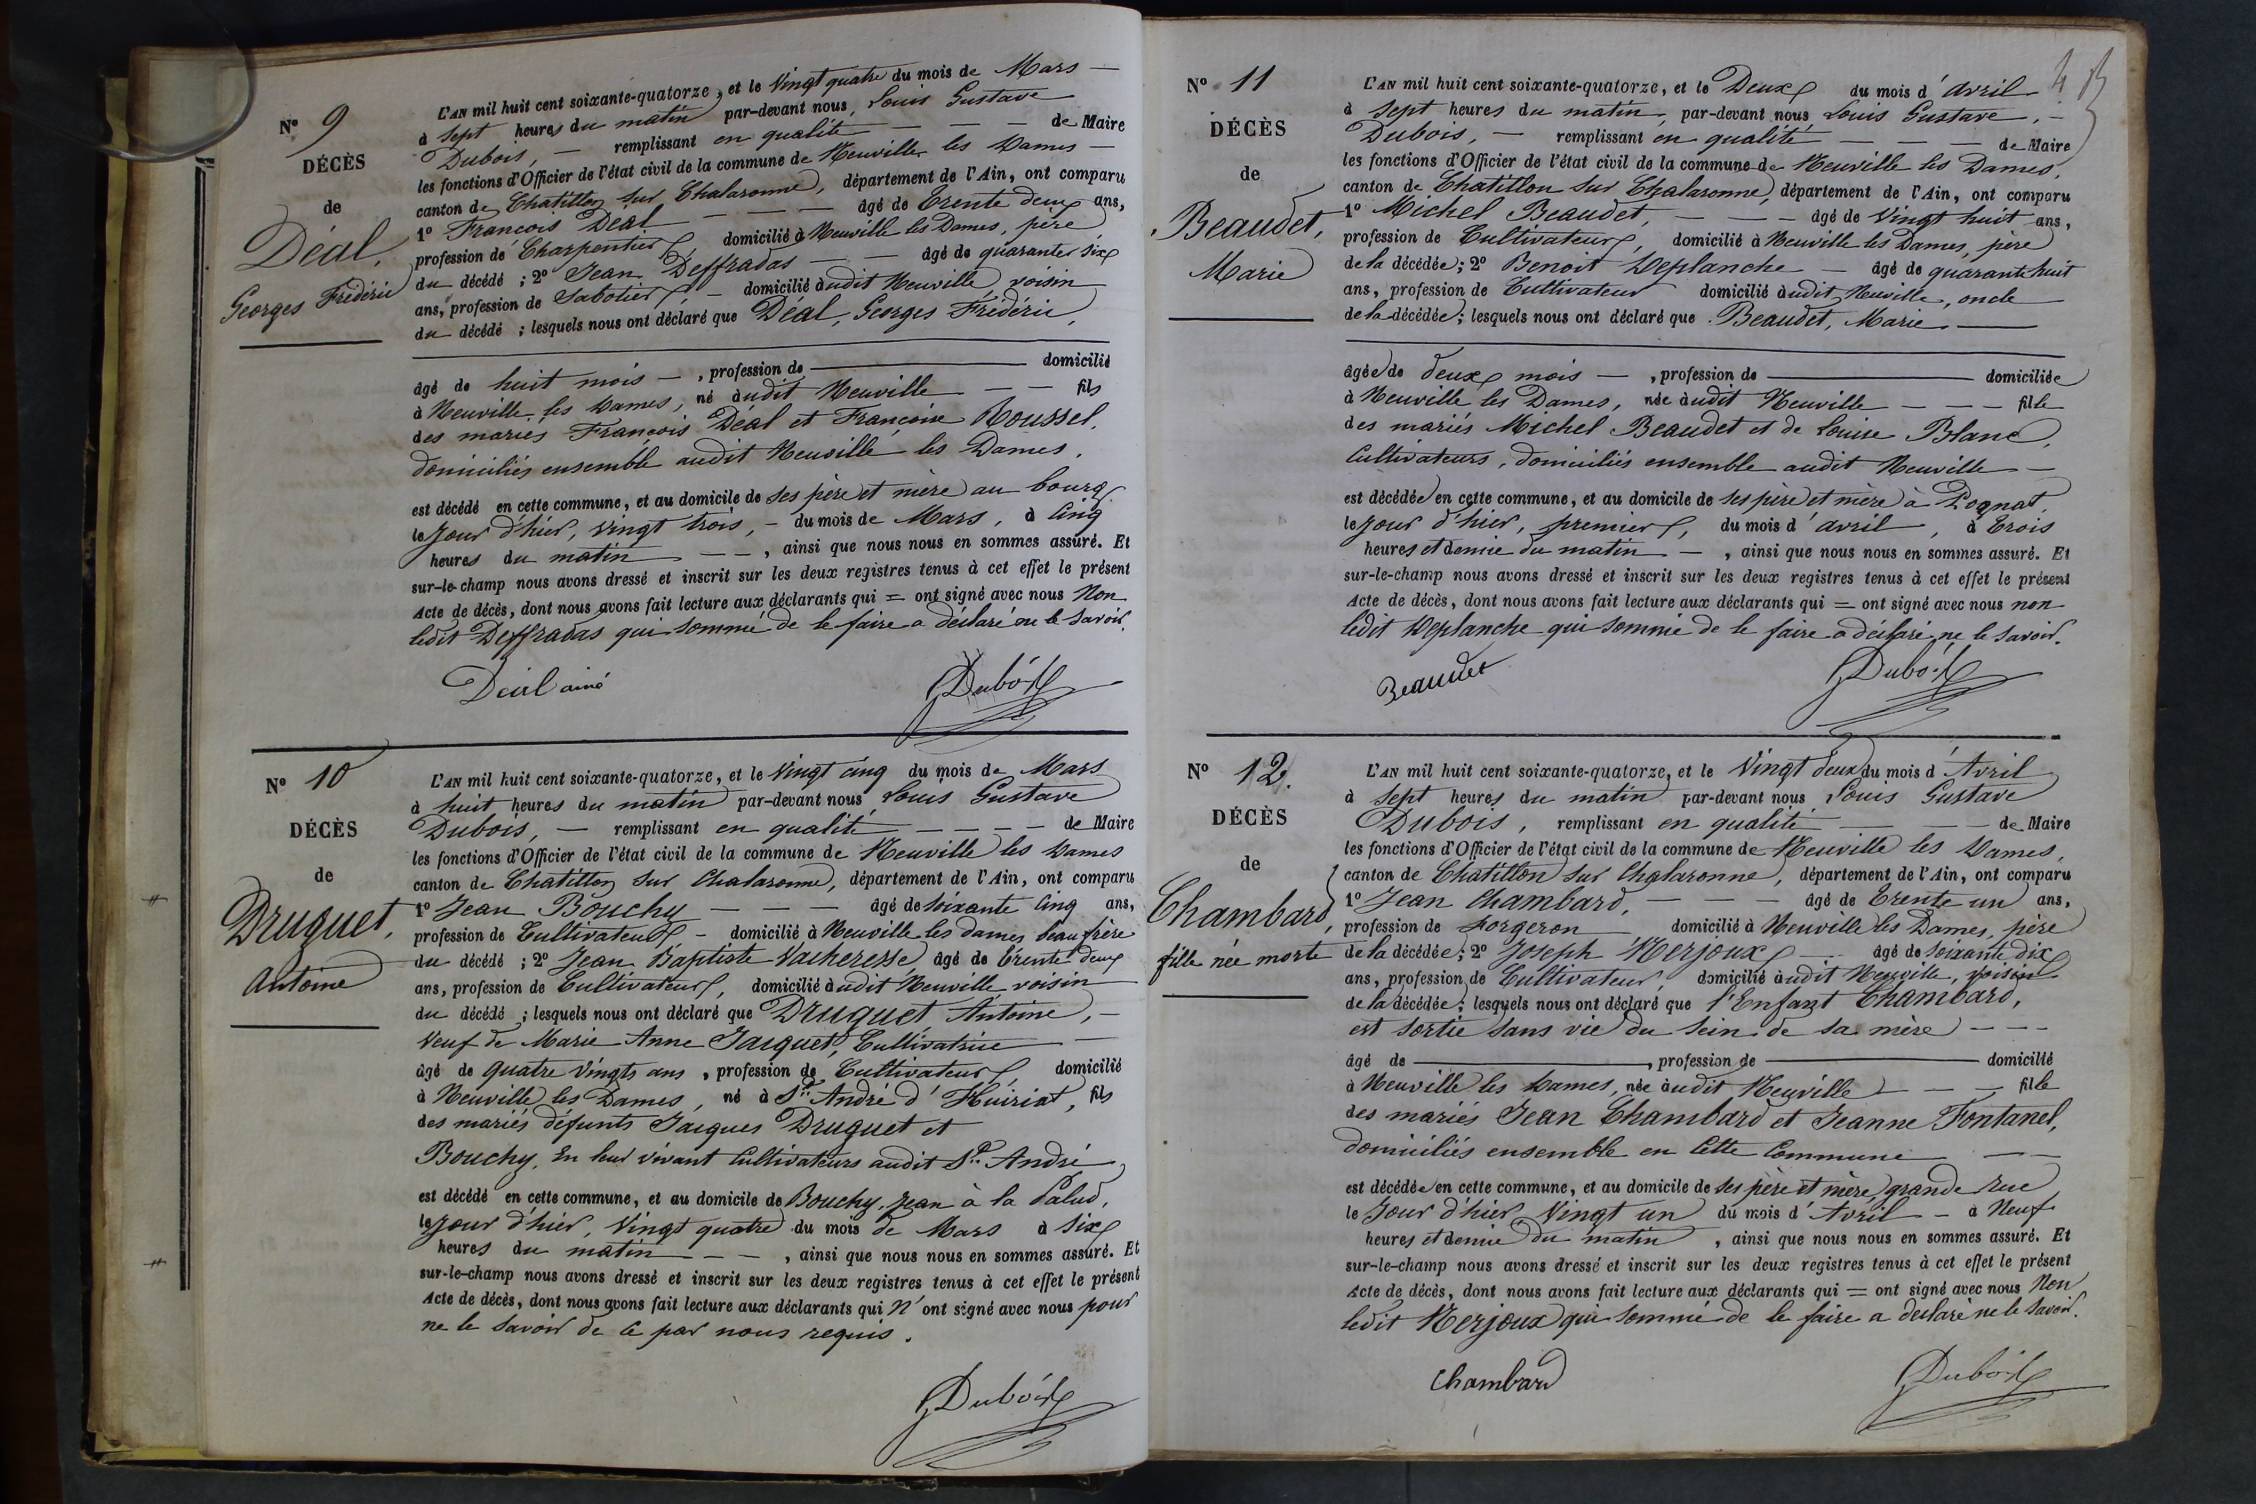 Nº 9
DÉCÈS
de
Déal,
Georges Frédéric
L'AN mil huit cent soixante-quatorze, et le Vingt quatre du mois de Mars —
à sept heures du matin par-devant nous Louis Gustave
Dubois, — remplissant en qualité — — — de Maire
les fonctions d'Officier de l'état civil de la commune de Neuville les Dames —
canton de Chatillon sur Chalaronne, département de l'Ain, ont comparu
1º François Déal — — — âgé de Trente deux ans,
profession de Charpentier, domicilié à Neuville les Dames, père
du décédé ; 2º Jean Deffradas — — âgé de quarante six
ans, profession de Sabotier, — domicilié audit Neuville, voisin
du décédé ; lesquels nous ont déclaré que Déal, Georges Frédéric,
âgé de huit mois — , profession de — domicilié
à Neuville les Dames, né audit Neuville — — fils
des mariés François Déal et Françoise Roussel,
domiciliés ensemble audit Neuville les Dames,
est décédé en cette commune, et au domicile de ses père et mère au bourg
le jour d'hier, vingt trois, — du mois de Mars, à Cinq
heures du matin — — , ainsi que nous nous en sommes assuré. Et
sur-le-champ nous avons dressé et inscrit sur les deux registres tenus à cet effet le présent
Acte de décès, dont nous avons fait lecture aux déclarants qui = ont signé avec nous Non
ledit Deffradas qui sommé de le faire a déclaré ne le savoir.
Déal ainé Dubois
Nº 10
DÉCÈS
de
Druguet,
Antoine
L'AN mil huit cent soixante-quatorze, et le Vingt cinq du mois de Mars
à huit heures du matin par-devant nous Louis Gustave
Dubois, — remplissant en qualité — — — — de Maire
les fonctions d'Officier de l'état civil de la commune de Neuville les Dames
canton de Chatillon sur Chalaronne, département de l'Ain, ont comparu
1º Jean Bouchy — — — âgé de soixante Cinq ans,
profession de Cultivateur — domicilié à Neuville les dames beau frère
du décédé ; 2º Jean Baptiste Vacheresse âgé de trente deux
ans, profession de Cultivateur, domicilié audit Neuville voisin
du décédé ; lesquels nous ont déclaré que Druguet Antoine, —
Veuf de Marie Anne Jacquet, Cultivatrice —
âgé de quatre Vingts ans , profession de Cultivateur, domicilié
à Neuville les Dames, né à St. André d'Huiriat, fils
des mariés défunts Jacques Druguet et
Bouchy, En leur vivant Cultivateurs audit St. André
est décédé en cette commune, et au domicile de Bouchy, Jean à la Palud,
le jour d'hier, Vingt quatre du mois de Mars à Six
heures du matin — — , ainsi que nous nous en sommes assuré. Et
sur-le-champ nous avons dressé et inscrit sur les deux registres tenus à cet effet le présent
Acte de décès, dont nous avons fait lecture aux déclarants qui N'ont signé avec nous pour
ne le savoir de ce par nous requis.
Dubois
4
Nº 11
DÉCÈS
de
Beaudet,
Marie
L'AN mil huit cent soixante-quatorze, et le Deux du mois d'avril
à sept heures du matin, par-devant nous Louis Gustave, —
Dubois, — remplissant en qualité — — — de Maire
les fonctions d'Officier de l'état civil de la commune de Neuville les Dames,
canton de Chatillon sur Chalaronne, département de l'Ain, ont comparu
1º Michel Beaudet, — — — âgé de Vingt huit ans,
profession de Cultivateur, domicilié à Neuville les Dames, père
de la décédée ; 2º Benoit Deplanche — âgé de quarante huit
ans, profession de Cultivateur domicilié audit Neuville, oncle
de la décédée ; lesquels nous ont déclaré que Beaudet, Marie —
âgée de deux mois — , profession de — domiciliée
à Neuville les Dames, née audit Neuville — — — fille
des mariés Michel Beaudet et de Louise Blanc,
Cultivateurs, domiciliés ensemble audit Neuville —
est décédée en cette commune, et au domicile de ses père et mère à Pognat,
le jour d'hier, premier, du mois d'avril, à Trois
heures et demie du matin — , ainsi que nous nous en sommes assuré. Et
sur-le-champ nous avons dressé et inscrit sur les deux registres tenus à cet effet le présent
Acte de décès, dont nous avons fait lecture aux déclarants qui = ont signé avec nous non
ledit Deplanche qui sommé de le faire a déclaré ne le savoir.
Beaudet Dubois
Nº 12.
DÉCÈS
de
Chambard,
fille née morte
L'AN mil huit cent soixante-quatorze, et le Vingt deux du mois d'Avril
à sept heures du matin par-devant nous Louis Gustave
Dubois, remplissant en qualité — — — de Maire
les fonctions d'Officier de l'état civil de la commune de Neuville les Dames,
canton de Chatillon sur Chalaronne, département de l'Ain, ont comparu
1º Jean Chambard, — — — âgé de Trente un ans,
profession de Forgeron domicilié à Neuville les Dames, père
de la décédée ; 2º Joseph Merjoux — âgé de soixante dix
ans, profession de Cultivateur, domicilié audit Neuville, voisin
de la décédée ; lesquels nous ont déclaré que l'Enfant Chambard,
est sortie sans vie du sein de sa mère — — —
âgé de — , profession de — domicilié
à Neuville les Dames, née audit Neuville — — — fille
des mariés Jean Chambard et Jeanne Fontanel,
domiciliés ensemble en Cette Commune — —
est décédée en cette commune, et au domicile de ses père et mère, grande Rue
le Jour d'hier, Vingt un du mois d'Avril — à Neuf
heures et demie du matin , ainsi que nous nous en sommes assuré. Et
sur-le-champ nous avons dressé et inscrit sur les deux registres tenus à cet effet le présent
Acte de décès, dont nous avons fait lecture aux déclarants qui = ont signé avec nous Non
ledit Merjoux qui sommé de le faire a déclaré ne le savoir.
Chambard Dubois